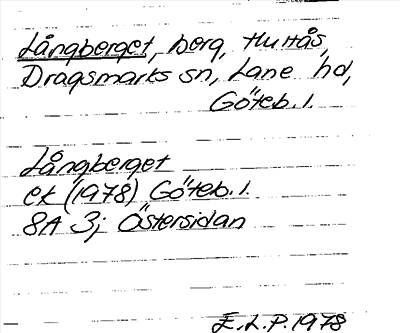 Långberget, berg, Huttås,
Dragsmarks sn, Lane hd,
Göteb. l.
Långberget
ek (1978) Göteb. l.
8A 3j Östersidan
E.L.P. 1978